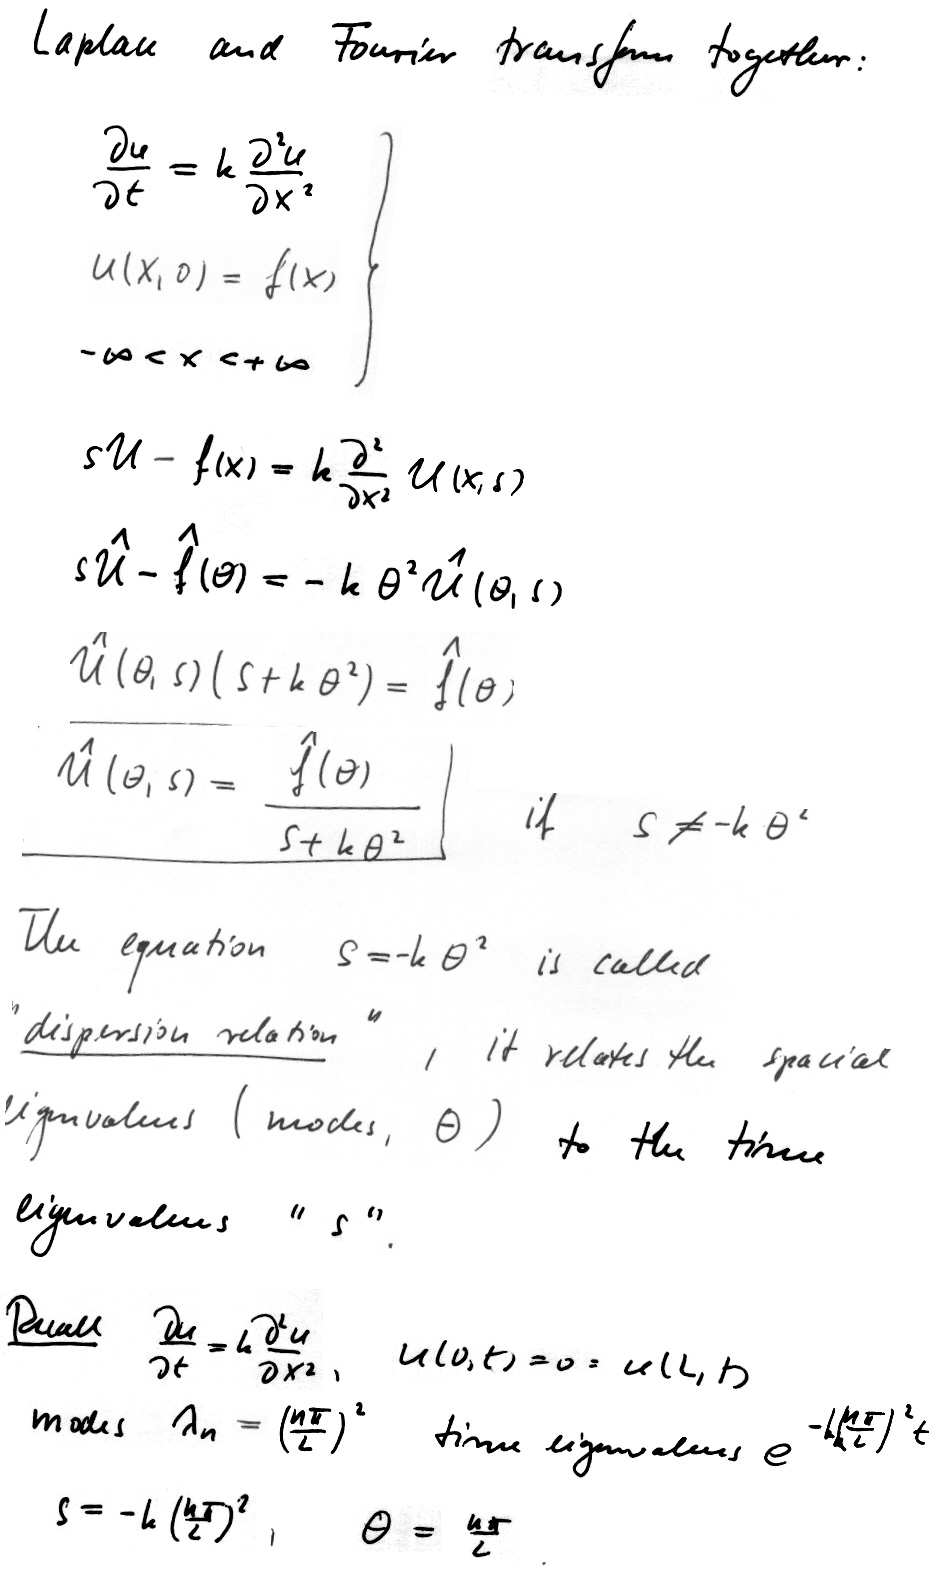 Laplace and Fourier transform together:
∂u/∂t = k ∂²u/∂x²
u(x, 0) = f(x)
-∞ < x < +∞
sU - f(x) = k ∂²/∂x² U(x, s)
sÛ - f̂(θ) = - k θ² Û(θ, s)
Û(θ, s)(s + k θ²) = f̂(θ)
Û(θ, s) = f̂(θ) / (s + kθ²) if s ≠ -k θ²
The equation s = -k θ² is called
"dispersion relation", it relates the spacial
eigenvalues (modes, θ) to the time
eigenvalues "s".
Recall ∂u/∂t = k ∂²u/∂x², u(0, t) = 0 = u(L, t)
modes λₙ = (nπ/L)² time eigenvalues e^{-k(nπ/L)²t}
s = -k (nπ/L)², θ = nπ/L.